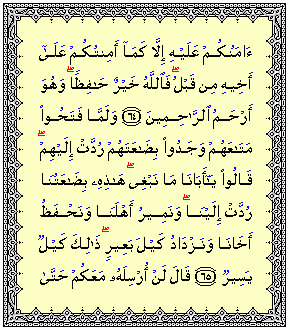 ءَامَنُكُمْ عَلَيْهِ إِلَّا كَمَآ أَمِنتُكُمْ عَلَىٰٓ
أَخِيهِ مِن قَبْلُ ۖ فَٱللَّهُ خَيْرٌ حَٰفِظًا ۖ وَهُوَ
أَرْحَمُ ٱلرَّٰحِمِينَ ﴿٦٤﴾ وَلَمَّا فَتَحُوا۟
مَتَٰعَهُمْ وَجَدُوا۟ بِضَٰعَتَهُمْ رُدَّتْ إِلَيْهِمْ ۖ
قَالُوا۟ يَٰٓأَبَانَا مَا نَبْغِى ۖ هَٰذِهِۦ بِضَٰعَتُنَا
رُدَّتْ إِلَيْنَا ۖ وَنَمِيرُ أَهْلَنَا وَنَحْفَظُ
أَخَانَا وَنَزْدَادُ كَيْلَ بَعِيرٍ ۖ ذَٰلِكَ كَيْلٌ
يَسِيرٌ ﴿٦٥﴾ قَالَ لَنْ أُرْسِلَهُۥ مَعَكُمْ حَتَّىٰ